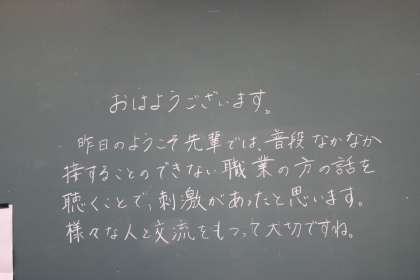 おはようございます。
昨日のようこそ先輩では、普段なかなか
接することのできない職業の方の話を
聴くことで、刺激があったと思います。
様々な人と交流をもつって大切ですね。